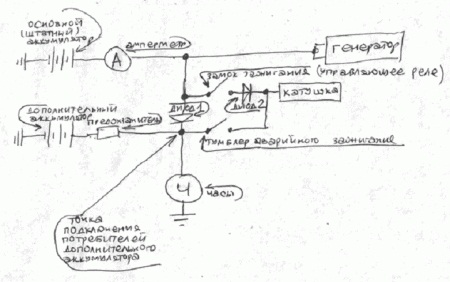 основной
(штатный)
аккумулятор
амперметр
А
генератор
замок зажигания (управляющее реле)
катушка
диод 1
диод 2
дополнительный
аккумулятор
предохранитель
тумблер аварийного зажигания
Ч
часы
точка
подключения
потребителей
дополнительного
аккумулятора